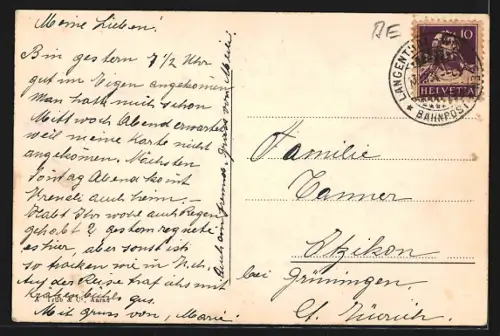 Meine Lieben!
Bin gestern 7 1/2 Uhr
gut im Eigen angekommen
Man hatte mich schon
Mittwoch Abend erwartet
weil meine Karte nicht
angekommen. Nächsten
Sontag Abend komt
Vreneli auch heim. –
Habt Ihr wohl auch Regen
gehabt? gestern regnete
es hier, aber sonst ist
so trocken wie in
Auf der Reise traf ich mit
zus.
Mit gruss von, Marie.
Gruss von Marie.
AE
10
HELVETIA
LANGENTHAL
BAHNPOST
Familie
Tanner
Itzikon
bei Grüningen.
Ct. Zürich.